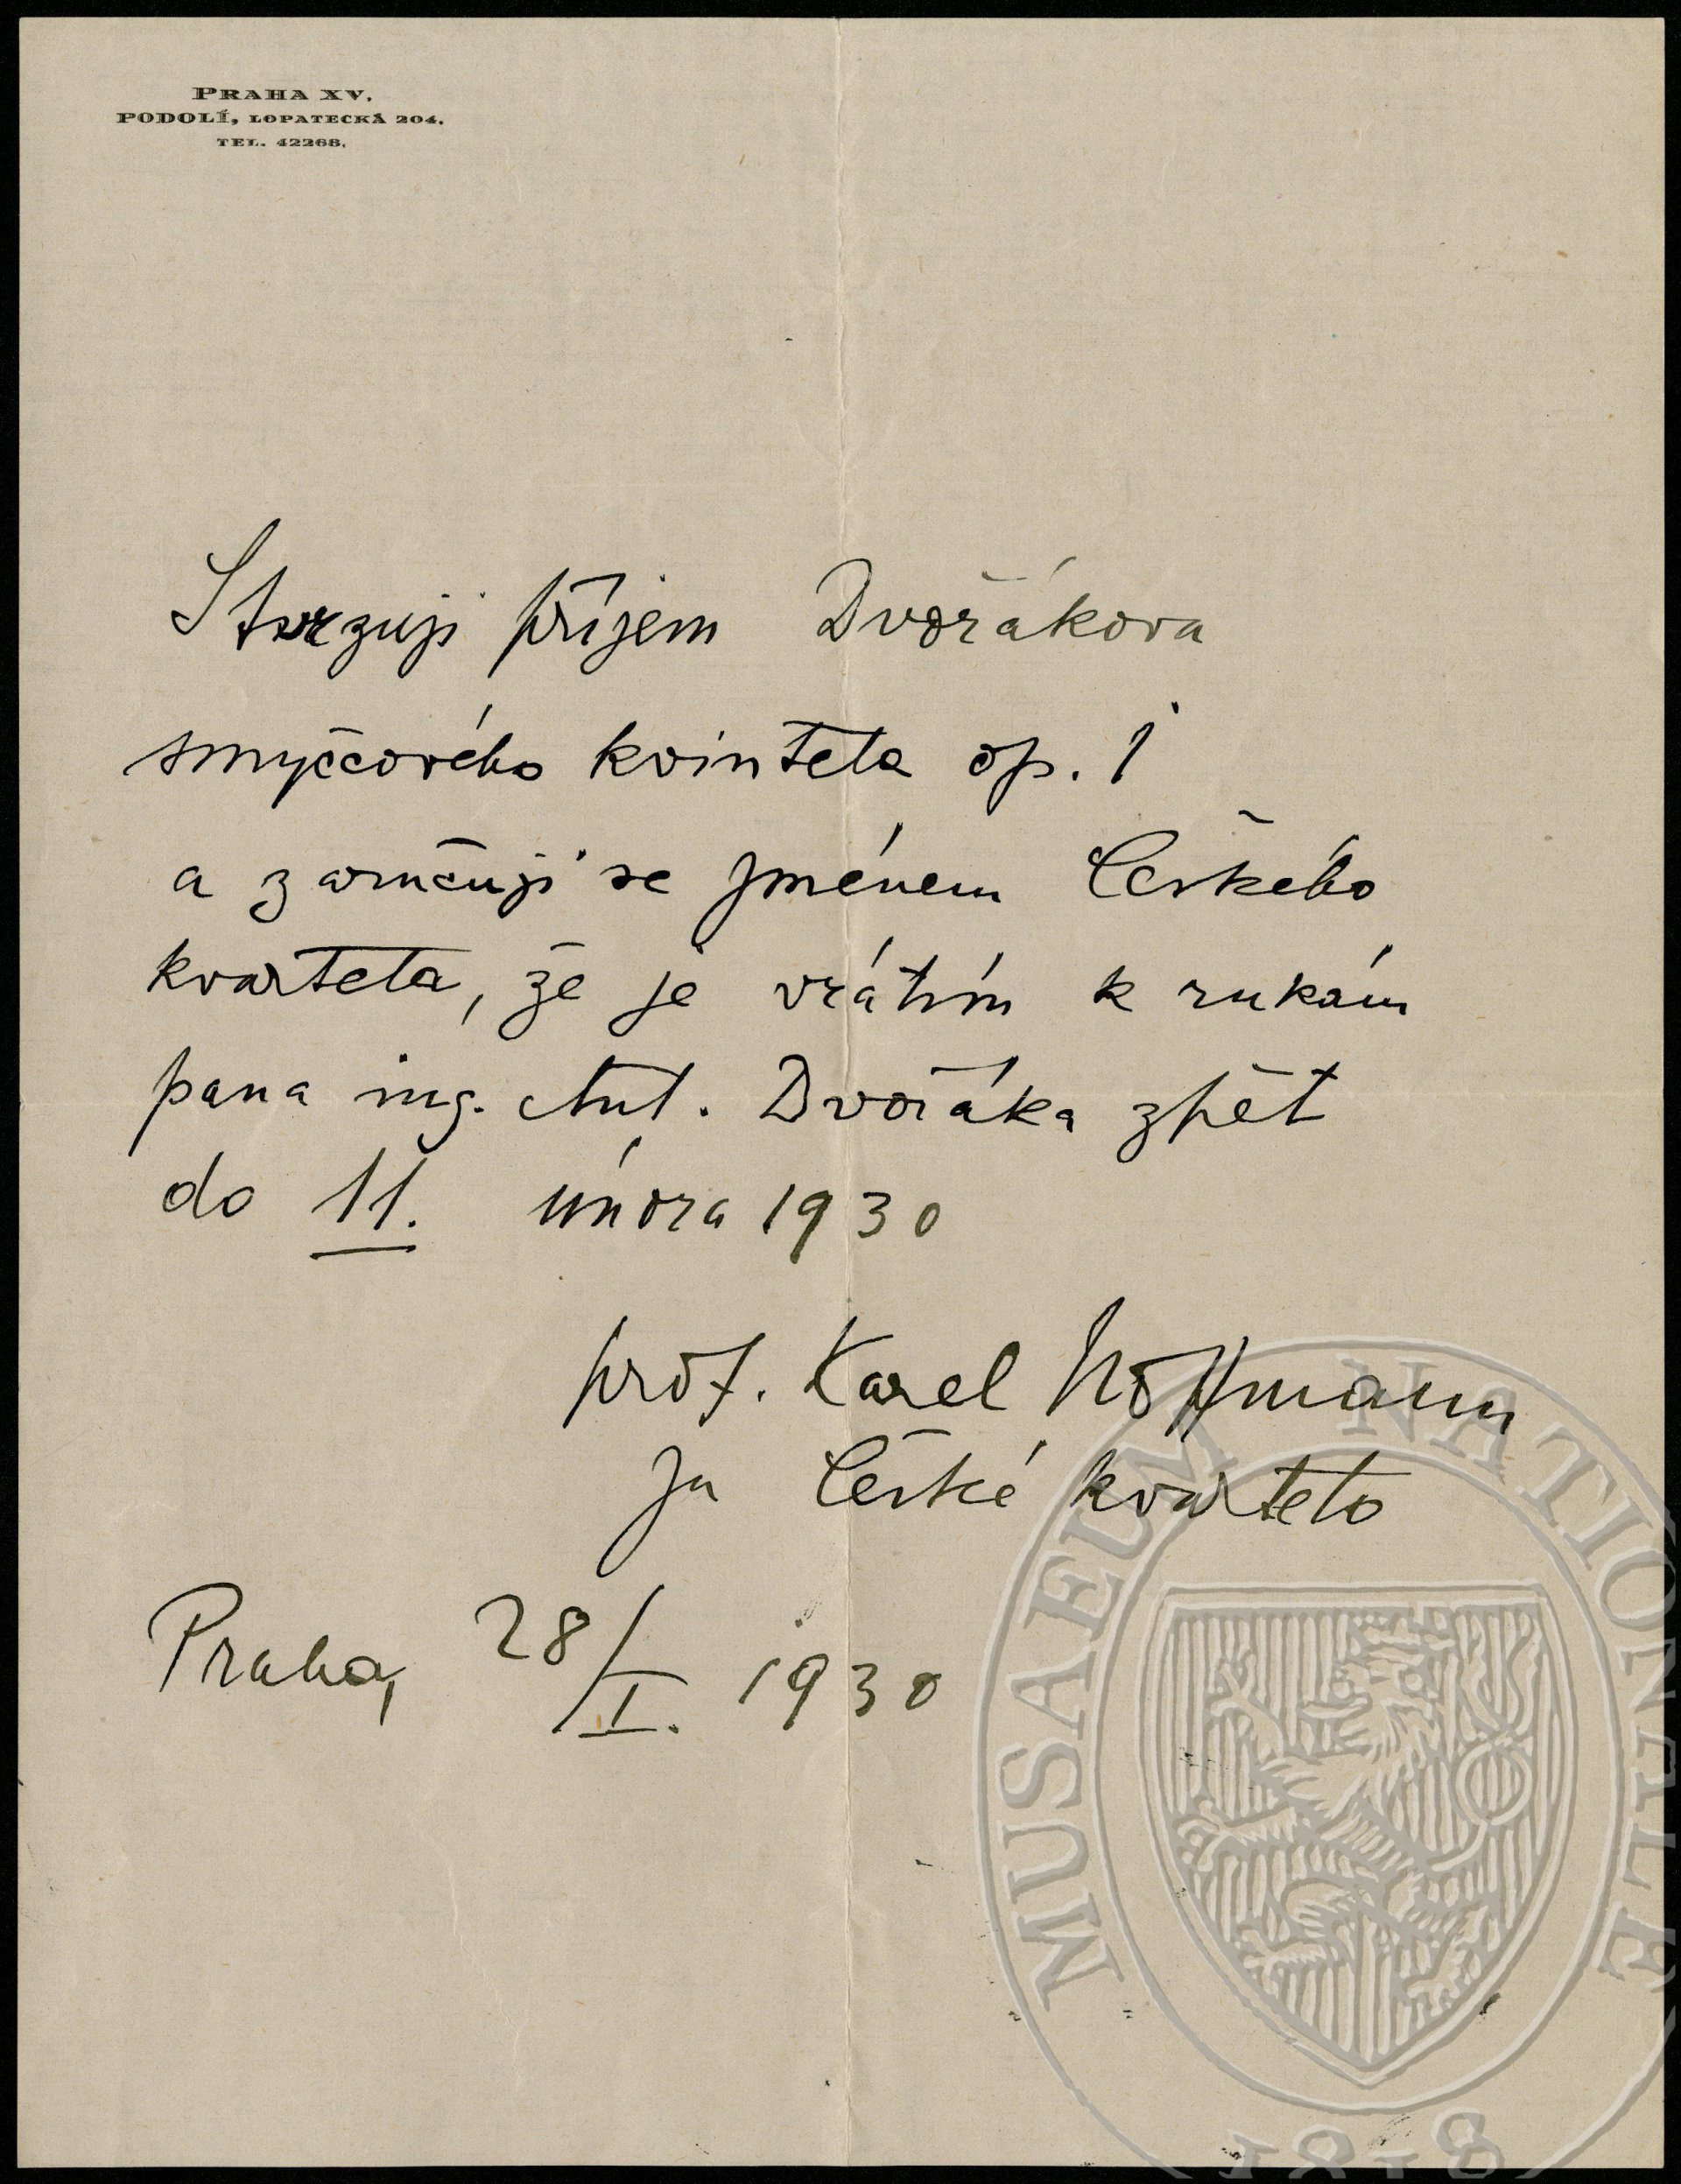 PRAHA XV.
PODOLÍ, LOPATECKÁ 204.
TEL. 42268.
Stvrzuji příjem Dvořákova
smyčcového kvinteta op. 1
a zaručuji se jménem Českého
kvarteta, že je vrátím k rukám
pana ing. Ant. Dvořáka zpět
do 11. února 1930
prof. Karel Hoffmann
za České kvarteto
Praha, 28/I. 1930
MUSAEUM NATIONALE
1818